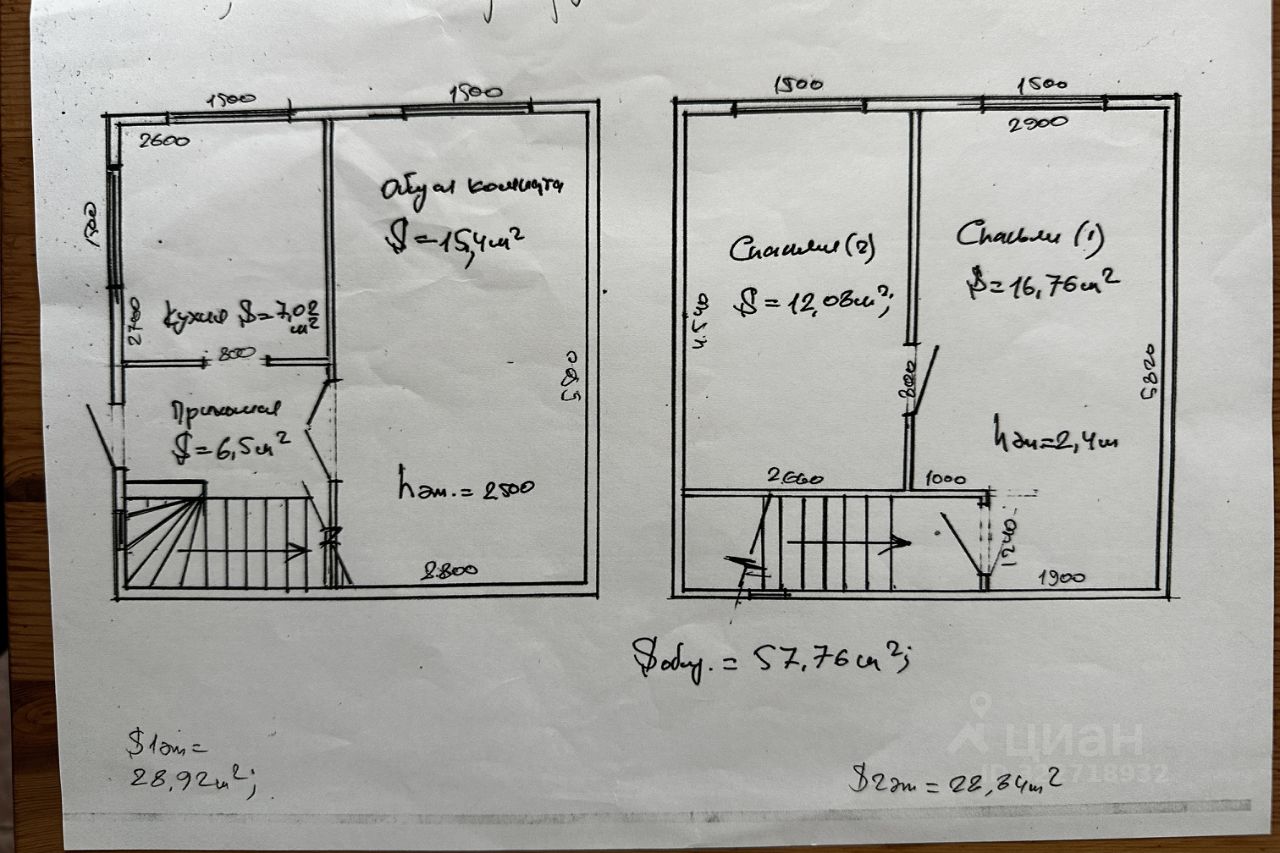 1500
1500
2600
Общая комната
S=15,4м²
1500
2700
Кухня S=7,02
м²
800
Прихожая
S=6,5м²
5500
hэт.=2500
2800
1500
1500
2900
Спальня (2)
S=12,08м²;
Спальня (1)
S=16,76м²
4.540
800
5820
hэт=2,4м
2.660
1000
1240
1900
Sобщ.=57,76м²;
S1эт=
28,92м²;
S2эт=28,84м²
циан